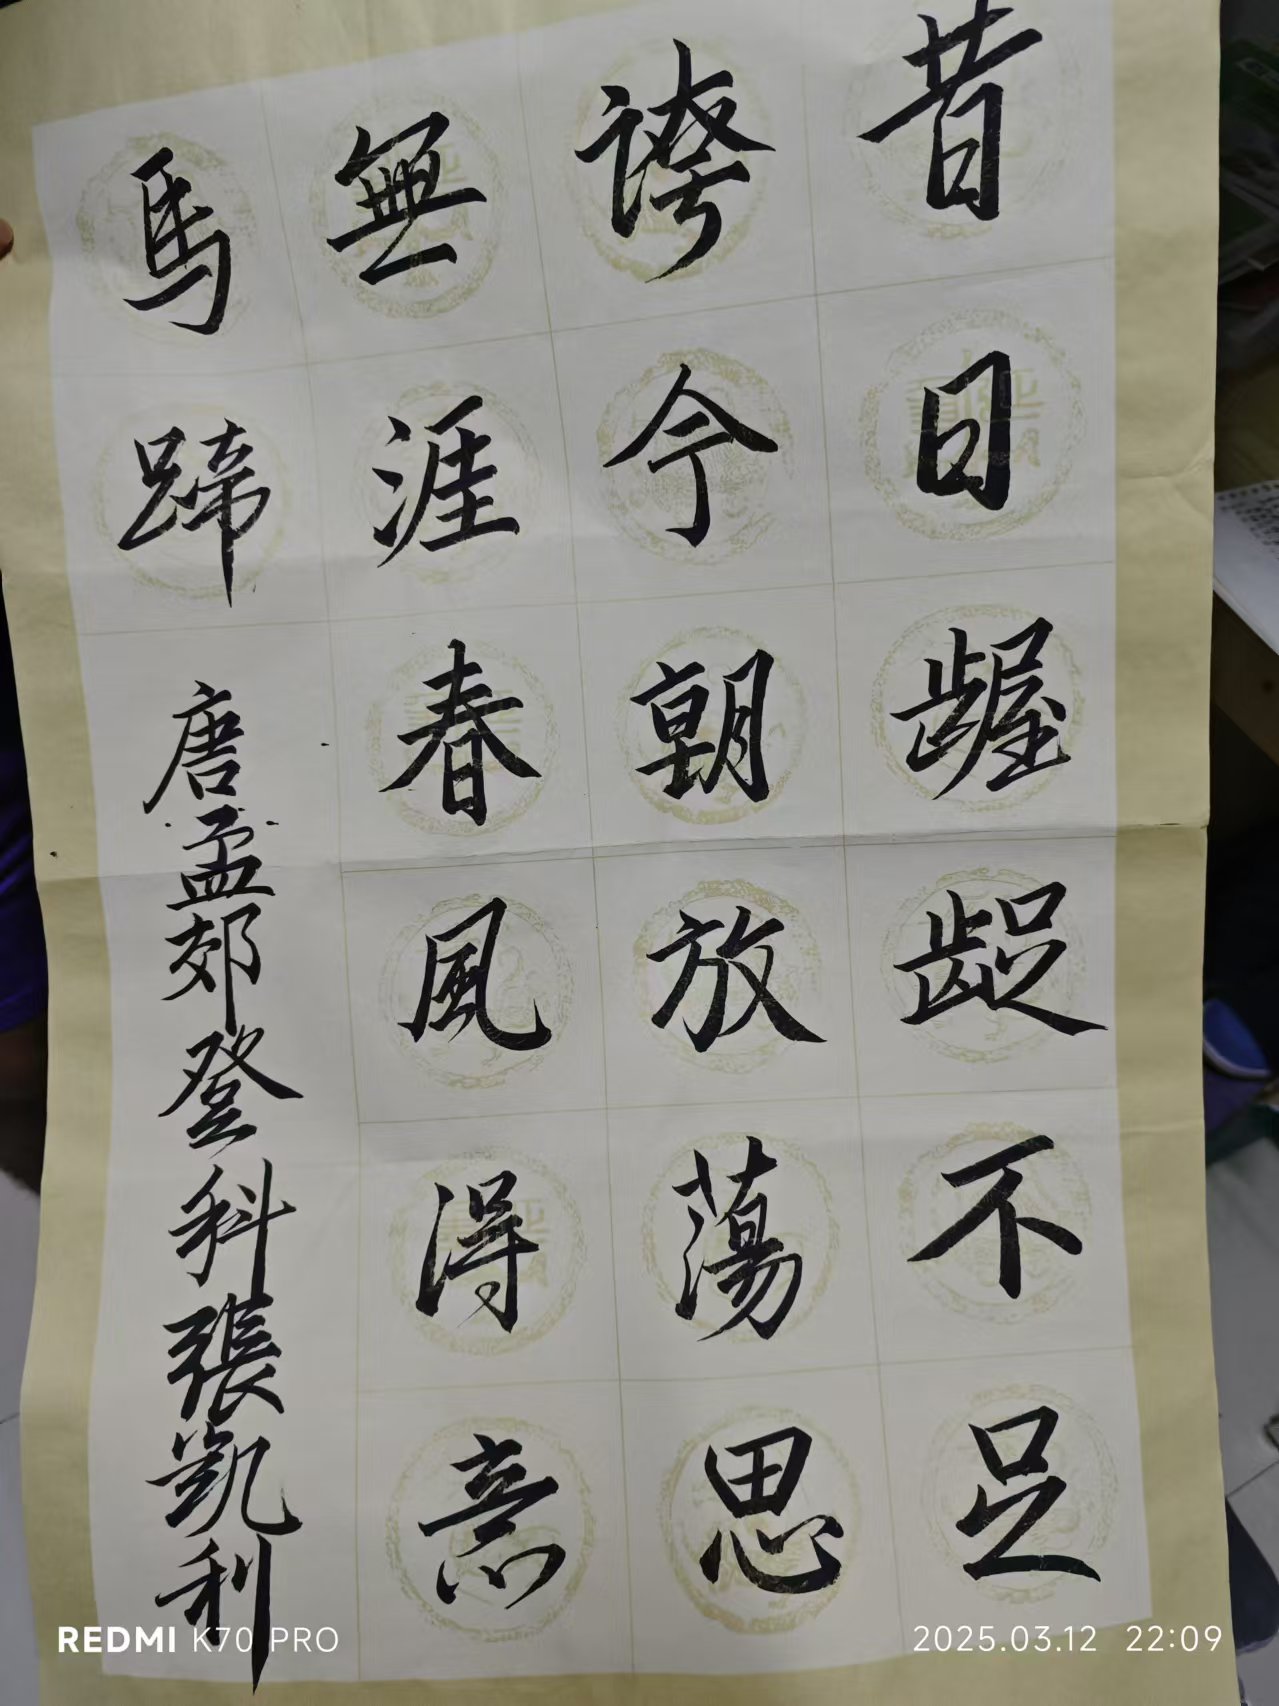 昔日齷齪不足
誇今朝放蕩思
無涯春風得意
馬蹄
唐孟郊登科張凱利
REDMI K70 PRO
2025.03.12 22:09